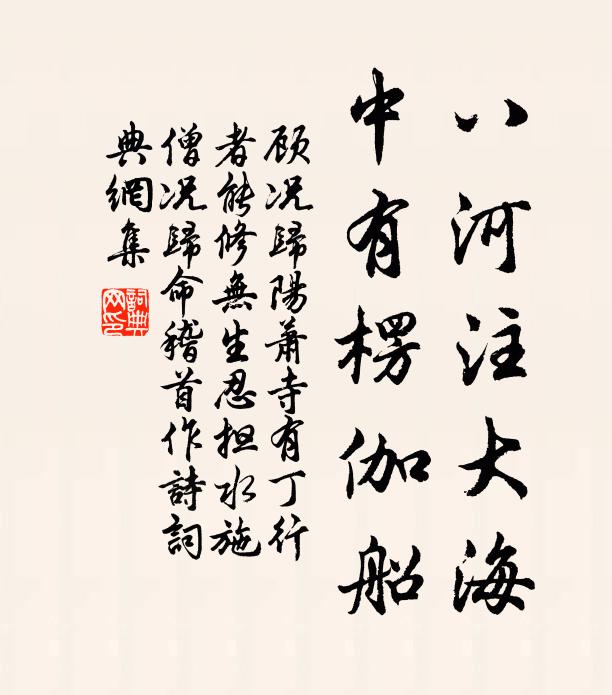 八河注大海
中有楞伽船
顾况歸陽蕭寺有丁行
者能修無生忍担水施
僧况歸命稽首作詩詞
典網集
詞典
网印